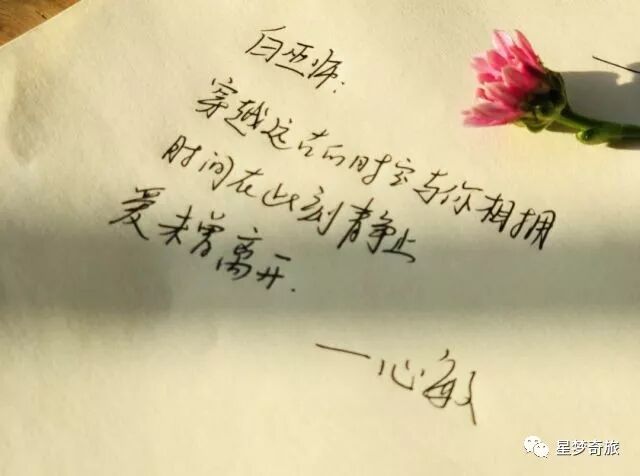 白巫师:
穿越远古的时空与你相拥
时间在此刻静止
爱未曾离开.
一心敏
星梦奇旅